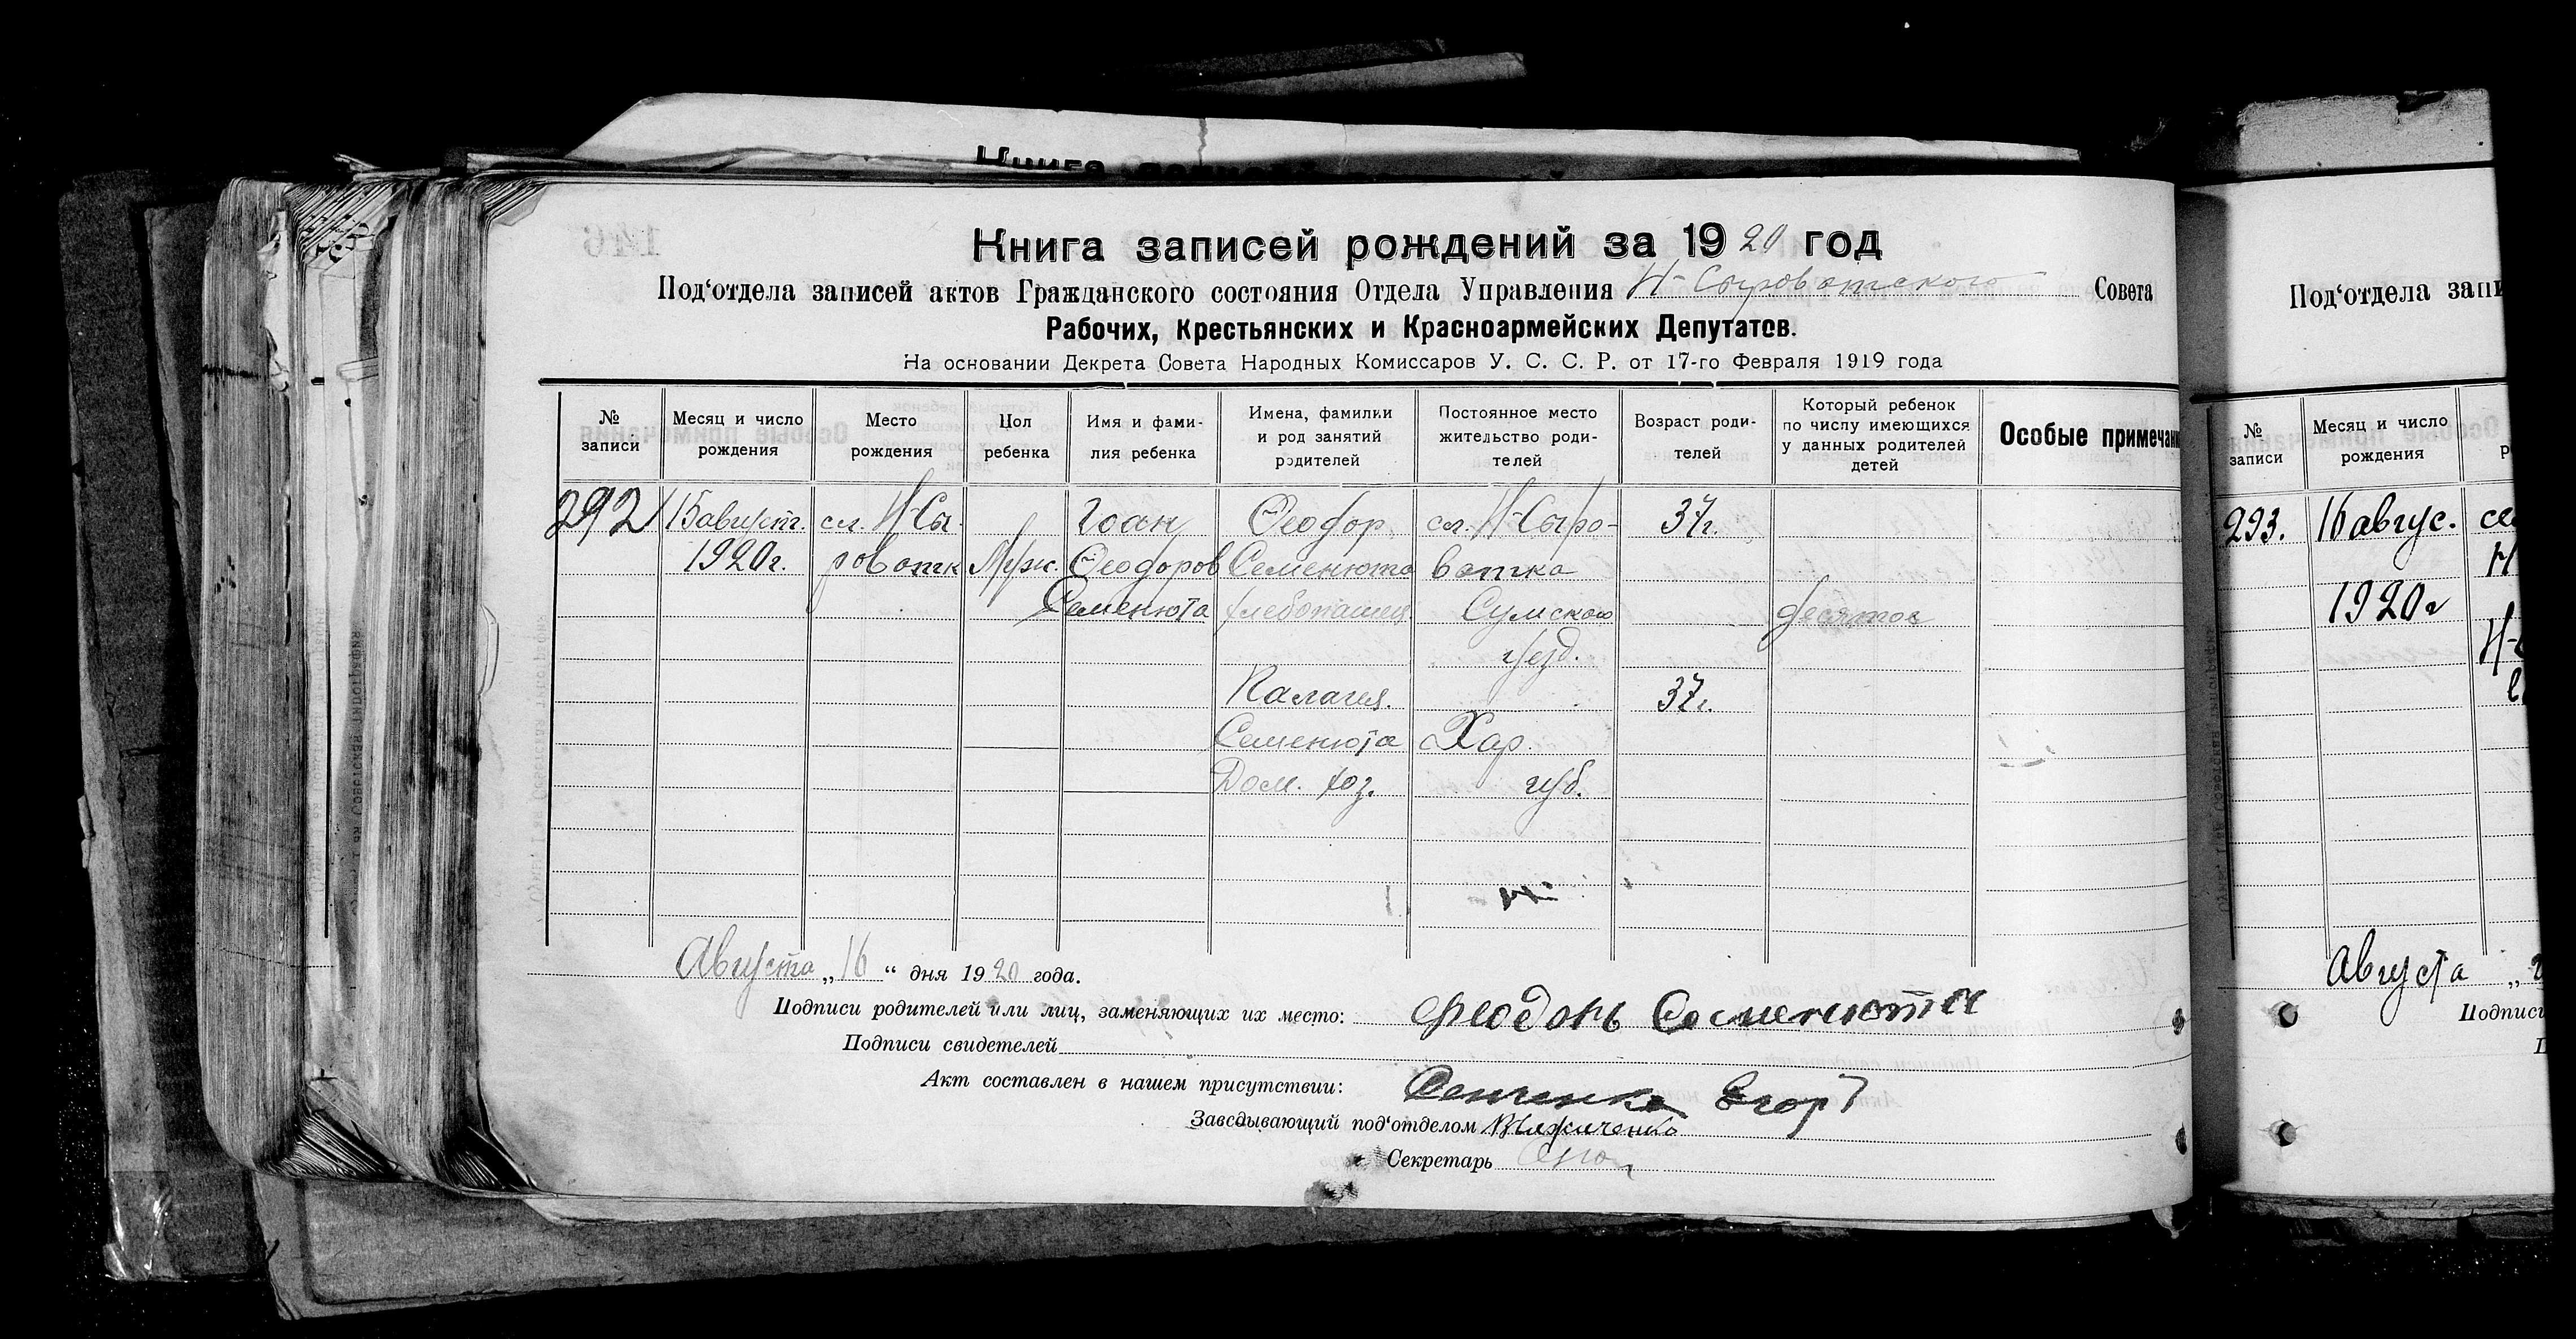 Книга записей рождений за 1920 год
Под‘отдела записей актов Гражданского состояния Отдела Управления Н-Сыроватского Совета
Рабочих, Крестьянских и Красноармейских Депутатов.
На основании Декрета Совета Народных Комиссаров У. С. С. Р. от 17-го Февраля 1919 года
№ записи
Месяц и число рождения
Место рождения
Пол ребенка
Имя и фами-лия ребенка
Имена, фамилии и род занятий родителей
Постоянное место жительство роди-телей
Возраст роди-телей
Который ребенок по числу имеющихся у данных родителей детей
Особые примечан
292 15 август. сл. Н-Сы- Іоан Ѳеодор сл. Н-Сыро- 37 г.
1920 г. роватк Муж. Ѳеодоров Семенюта ватка
Семенюта хлебопашец Сумского десятое
уезд.
Палагия. 37 г.
Семенюта Хар.
Дом. хоз. губ.
Августа „16“ дня 1920 года.
Подписи родителей или лиц, заменяющих их место: Феодоръ Семенюта
Подписи свидетелей
Акт составлен в нашем присутствии: Егор
Заведывающий под‘отделом
Секретарь
Под‘отдела запи
№ записи
Месяц и число рождения
293. 16 авгус.
1920 г
Августа
Подписи